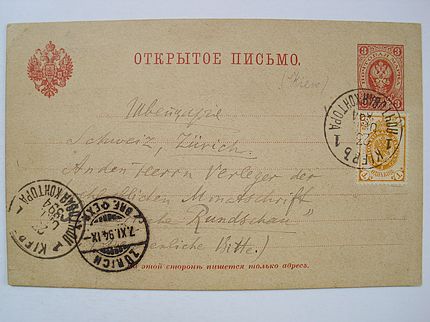 3 3
ОТКРЫТОЕ ПИСЬМО.
(Kiew)
Швейцарія
Schweiz, Zürich.
КІЕВЪ 1
ПОЧТОВАЯ КОНТОРА
1894
An den Herrn Verleger der
Monatsschrift
Rundschau"
Bitte.)
КІЕВЪ 1
ПОЧТОВАЯ КОНТОРА
1894
ZÜRICH
7.XI.94.IX-
BRF.EXP.
1 1
На этой сторонѣ пишется только адресъ.